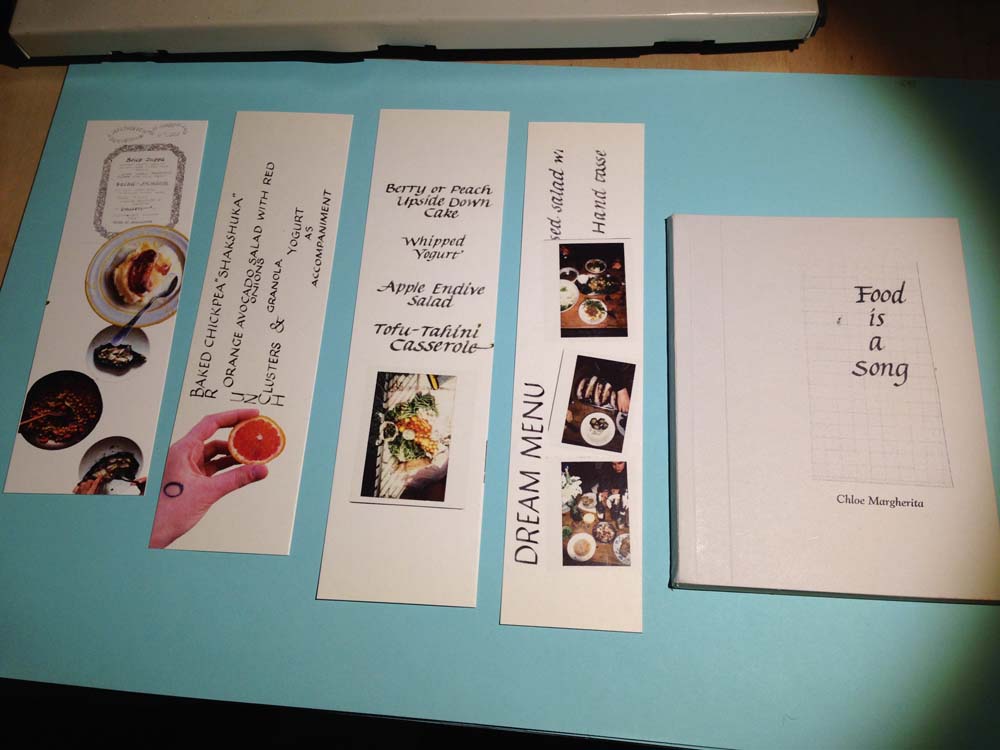 BRUNCH
BAKED CHICKPEA "SHAKSHUKA"
ORANGE AVOCADO SALAD WITH RED
ONIONS
CLUSTERS & GRANOLA
YOGURT
AS
ACCOMPANIMENT
Berry or Peach
Upside Down
Cake
Whipped
Yogurt
Apple Endive
Salad
Tofu-Tahini
Casserole
DREAM MENU
salad
Hand
Food
is
a
song
Chloe Margherita